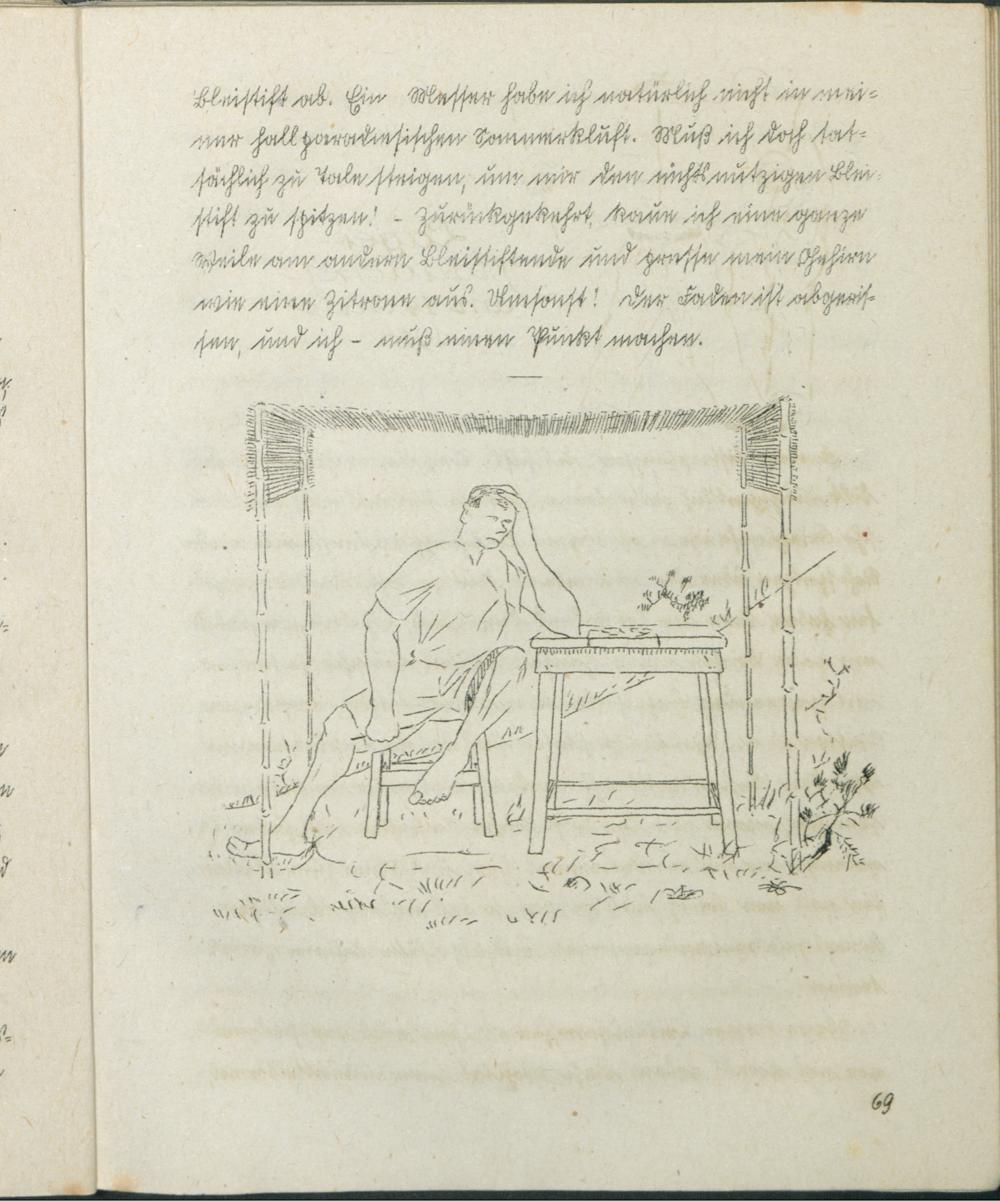 Bleistift ab. Ein Messer habe ich natürlich nicht in mei-
ner hallparadiesischen Sommerkluft. Muß ich doch tat-
sächlich zu Tale steigen, um mir den nichtsnutzigen Blei-
stift zu spitzen! - Zurückgekehrt, kaue ich eine ganze
Weile am andern Bleistiftende und presse mein Gehirn
wie eine Zitrone aus. Umsonst! Der Faden ist abgeris-
sen, und ich - muß einen Punkt machen.
69